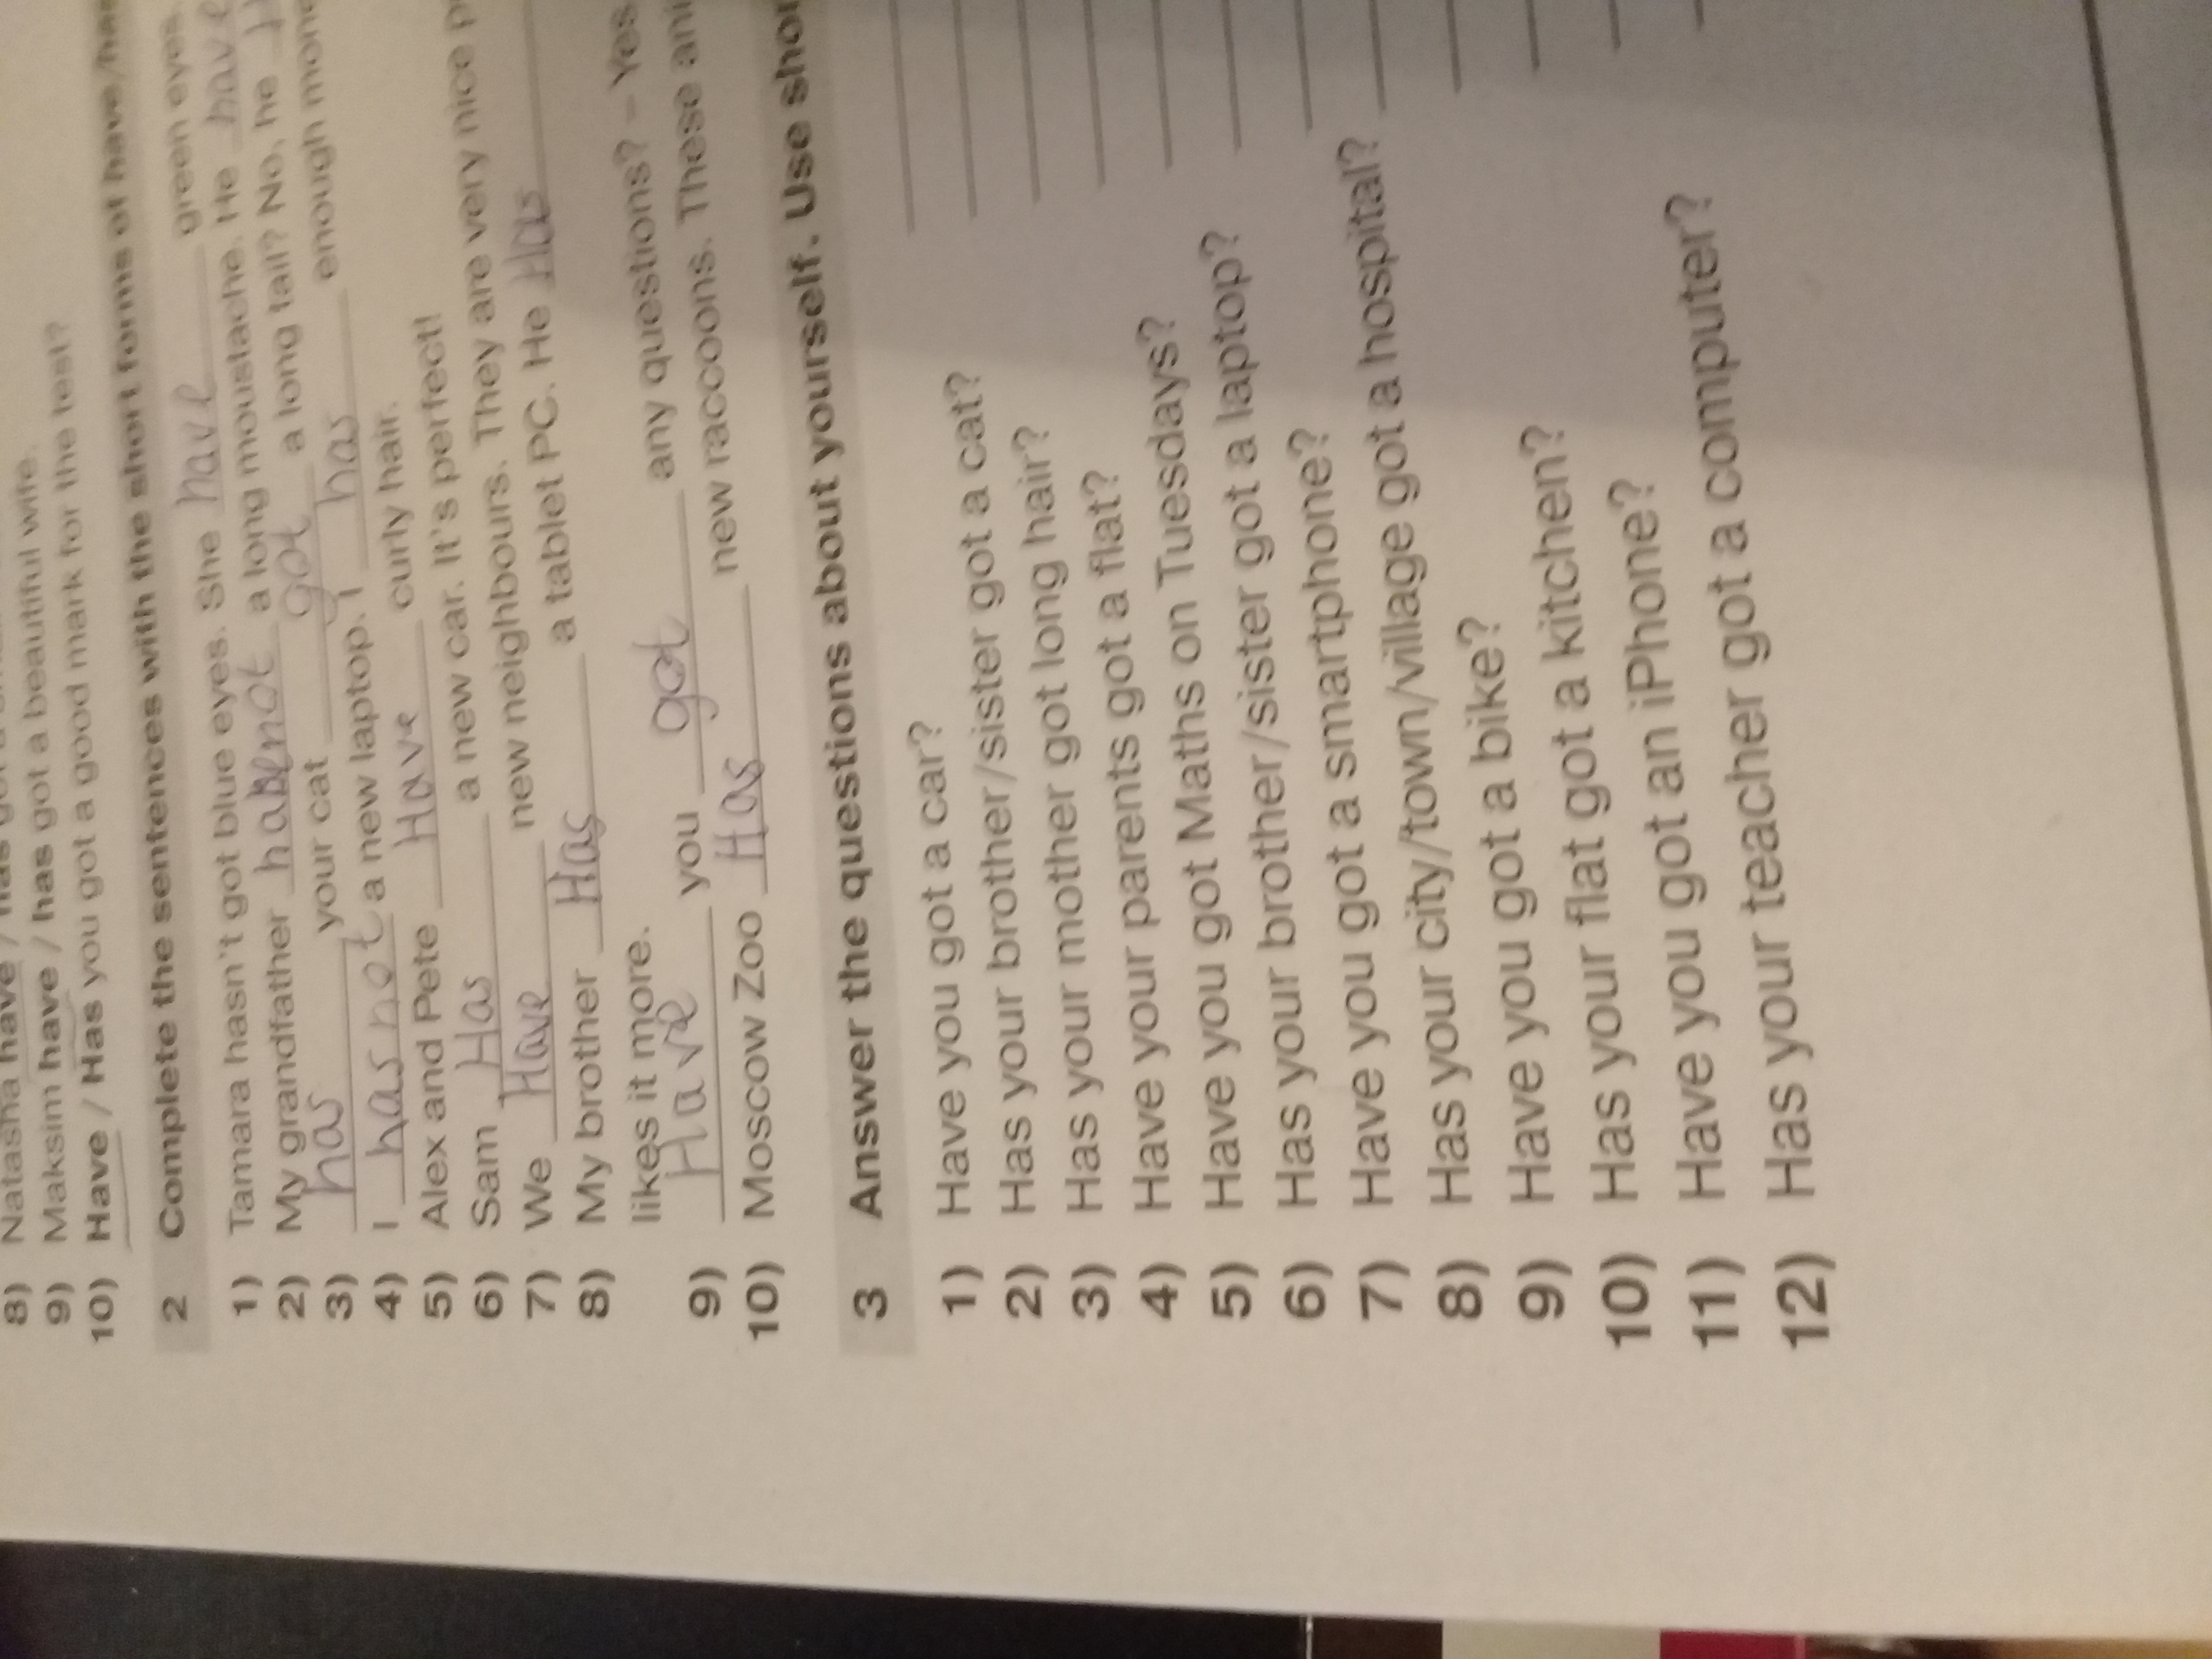 8) Natasha have / has got
9) Maksim have / has got a beautiful wife.
10) Have / Has you got a good mark for the test?
2 Complete the sentences with the short forms of have/has
1) Tamara hasn't got blue eyes. She have green eyes.
2) My grandfather not a long moustache. He have
3) has your cat got a long tail? No, he
4) I has not a new laptop. I has enough
5) Alex and Pete Have curly hair.
6) Sam Has a new car. It's perfect!
7) We Have new neighbours. They are very nice
8) My brother Has a tablet PC. He Has
likes it more.
9) Have you got any questions? – Yes
10) Moscow Zoo Has new raccoons. These
3 Answer the questions about yourself. Use
1) Have you got a car?
2) Has your brother/sister got a cat?
3) Has your mother got long hair?
4) Have your parents got a flat?
5) Have you got Maths on Tuesdays?
6) Has your brother/sister got a laptop?
7) Have you got a smartphone?
8) Has your city/town/village got a hospital?
9) Have you got a bike?
10) Has your flat got a kitchen?
11) Have you got an iPhone?
12) Has your teacher got a computer?